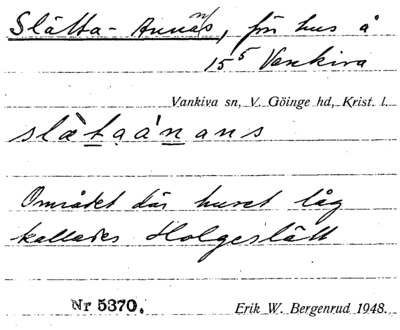 Slätta-Annas, för hus å
15⁵ Vankiva
Vankiva sn, V. Göinge hd, Krist. l.
slàtaánans
Området där huset låg
kallades Holgeslätt
Nr 5370.
Erik W. Bergenrud 1948.